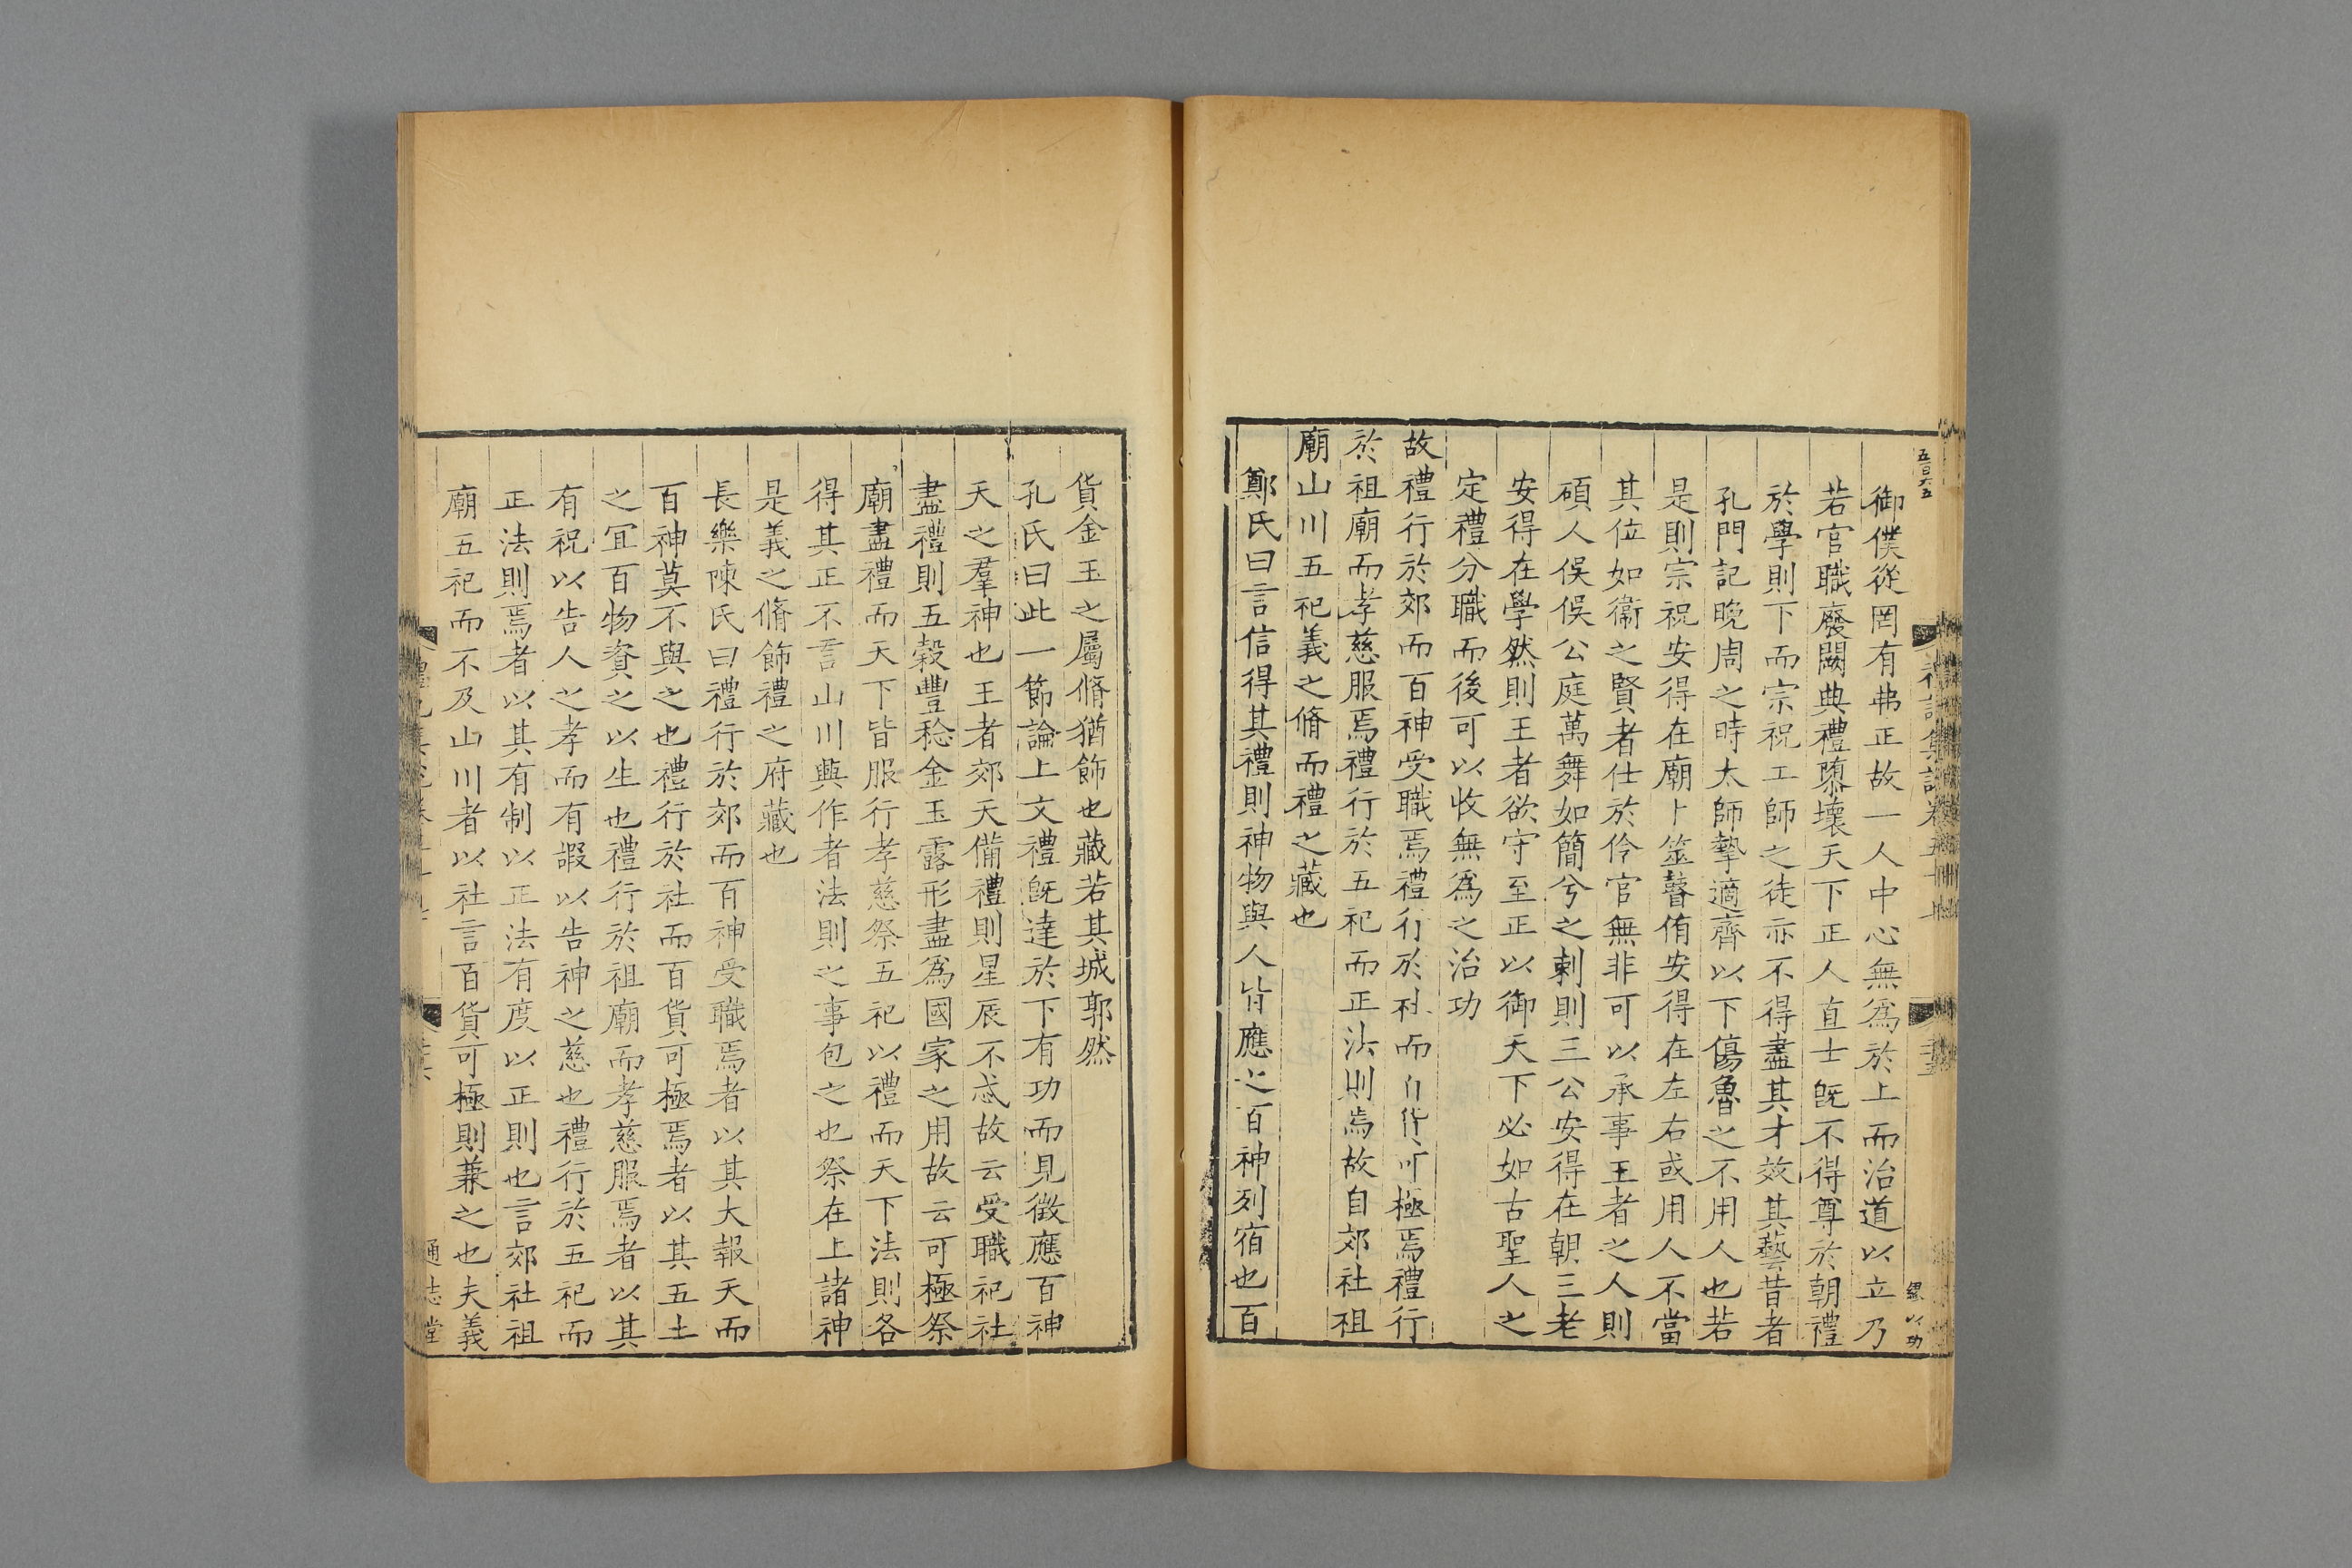 御僕從罔有弗正故一人中心無爲於上而治道以立乃
若官職廢闕典禮隳壞天下正人直士旣不得尊於朝禮
於學則下而宗祝工師之徒亦不得盡其才效其藝昔者
孔門記晚周之時太師摯適齊以下傷魯之不用人也若
是則宗祝安得在廟卜筮瞽侑安得在左右或用人不當
其位如衞之賢者仕於伶官無非可以承事王者之人則
碩人俁俁公庭萬舞如簡兮之刺則三公安得在朝三老
安得在學然則王者欲守至正以御天下必如古聖人之
定禮分職而後可以收無爲之治功
故禮行於郊而百神受職焉禮行於社而百貨可極焉禮行
於祖廟而孝慈服焉禮行於五祀而正法則焉故自郊社祖
廟山川五祀義之脩而禮之藏也
鄭氏曰言信得其禮則神物與人皆應之百神列宿也百
貨金玉之屬脩猶飾也藏若其城郭然
孔氏曰此一節論上文禮旣達於下有功而見徵應百神
天之羣神也王者郊天備禮則星辰不忒故云受職祀社
盡禮則五穀豐稔金玉露形盡爲國家之用故云可極祭
廟盡禮而天下皆服行孝慈祭五祀以禮而天下法則各
得其正不言山川興作者法則之事包之也祭在上諸神
是義之脩飾禮之府藏也
長樂陳氏曰禮行於郊而百神受職焉者以其大報天而
百神莫不與之也禮行於社而百貨可極焉者以其五土
之宜百物資之以生也禮行於祖廟而孝慈服焉者以其
有祝以告人之孝而有嘏以告神之慈也禮行於五祀而
正法則焉者以其有制以正法有度以正則也言郊社祖
廟五祀而不及山川者以社言百貨可極則兼之也夫義
通志堂